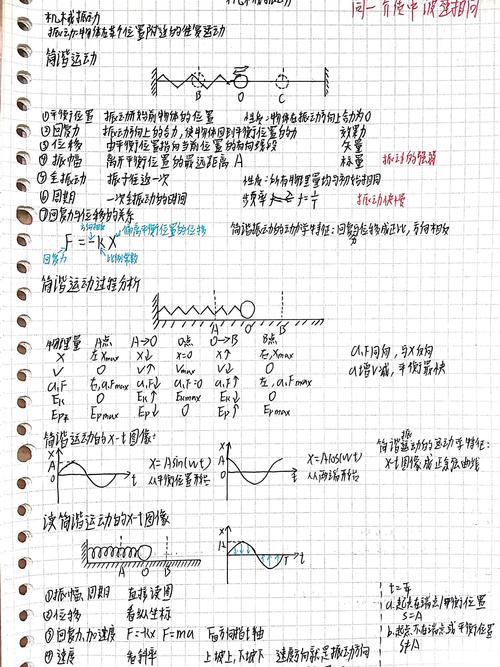 机械振动
同一介质中波速相同
机械振动
振动:物体在某个位置附近的往复运动
简谐运动
B O C
①平衡位置 振动开始前物体的位置 性质:物体在振动方向上合力为0
②回复力 振动方向上的合力,使物体回到平衡位置的力 效果力
③位移 由平衡位置指向当前位置的有向线段 矢量
④振幅 离开平衡位置的最远距离A 标量 振动的强弱
⑤全振动 振子往返一次 性质:所有物理量均与初始相同
⑥周期 一次全振动的时间 频率 f=1/T 振动快慢
⑦回复力与位移的关系
方向相反 偏离平衡位置的位移
F=-kX
回复力 比例常数
简谐振动的动力学特征:回复力与位移成正比,方向相反
简谐运动过程分析
A O B
物理量 A点 A→O O点 O→B B点
X 左Xmax X↓ X=0 X↑ 右,Xmax
V 0 V↑ Vmax V↓ 0
a,F 右,a,Fmax a,F↓ a,F=0 a,F↑ 左,a,Fmax
Ek 0 Ek↑ Ekmax Ek↓ 0
Ep Epmax Ep↓ 0 Ep↑ Epmax
a,F同向,与X反向
a增V减,平衡最快
简谐运动的x-t图像:
X A O t
X=Asin(wt)
从平衡位置开始
X A O t
X=Acos(wt)
从两端开始
简谐振动的运动学特征:
x-t图像成正余弦曲线
读简谐运动的x-t图像
A O B
X A T t
①振幅,周期 直接读图
②位移 看纵坐标
③回复力,加速度 F=-kx F=ma F方向指t轴
④速度 看斜率 上坡上,下坡下 速度方向就是振动方向
t=T/4
a.起点在端点/平衡位置
S=A
b.起点不在端点或平衡位置
S≠A